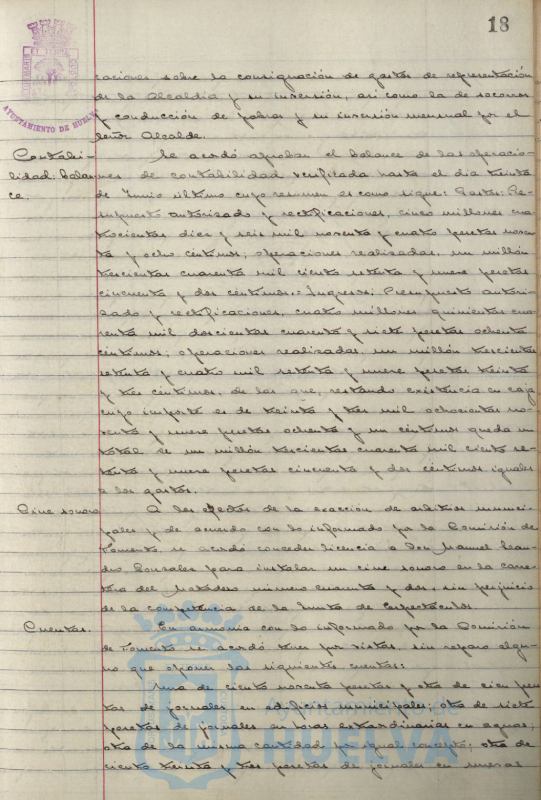 18
AYUNTAMIENTO DE HUELVA
caciones sobre la consignación de gastos de representación
de la Alcaldía y su inversión, así como la de socorros
y conducción de pobres y su inversión mensual por el
señor Alcalde.
Contabi- Se acordó aprobar el balance de las operacio-
lidad: balan- nes de contabilidad verificada hasta el día treinta
ce. de Junio último cuyo resumen es como sigue: Gastos: Pre-
supuesto autorizado y rectificaciones, cinco millones cua-
trocientas diez y seis mil noventa y cuatro pesetas noven-
ta y ocho céntimos; operaciones realizadas, un millón
trescientas cuarenta mil ciento setenta y nueve pesetas
cincuenta y dos céntimos.= Ingresos: Presupuesto autori-
zado y rectificaciones, cuatro millones quinientas cua-
renta mil doscientas cuarenta y siete pesetas ochenta
céntimos; operaciones realizadas, un millón trescientas
setenta y cuatro mil setenta y nueve pesetas treinta
y tres céntimos, de las que, restando existencia en caja
cuyo importe es de treinta y tres mil ochocientas no-
venta y nueve pesetas ochenta y un céntimos queda un
total de un millón trescientas cuarenta mil ciento se-
tenta y nueve pesetas cincuenta y dos céntimos iguales
a los gastos.
Cine sonoro A los efectos de la exacción de arbitrios munici-
pales y de acuerdo con lo informado por la Comisión de
Fomento se acordó conceder licencia a Don Manuel
González para instalar un cine sonoro en la carre-
tera del Matadero número cuarenta y dos, sin perjuicio
de la competencia de la Junta de Espectáculos
Cuentas. En armonía con lo informado por la Comisión
de Fomento se acordó tener por vistas, sin reparo algu-
no que oponer las siguientes cuentas:
Una de ciento noventa pesetas y otra de cien pese-
tas de jornales en edificios municipales; otra de siete
pesetas de jornales en horas extraordinarias en aguas;
otra de la misma cantidad por igual concepto; otra de
ciento treinta y tres pesetas de jornales en nuevas
Ayuntamiento de
HUELVA